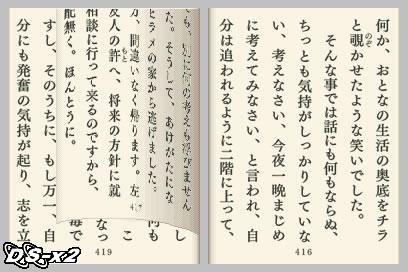 何か、おとなの生活の奥底をチラ
と覗かせたような笑いでした。
のぞ
そんな事では話にも何もならぬ、
ちっとも気持がしっかりしていな
い、考えなさい、今夜一晩まじめ
に考えてみなさい、と言われ、自
分は追われるように二階に上って、
416
も、別に何の考えも浮びません
した。そうして、あけがたにな
ヒラメの家から逃げました。
方、間違いなく帰ります。左
友人の許へ、将来の方針に就
もと
相談に行って来るのですから、
配無く。ほんとうに。
417
し
何も
こ
なっ
毎で
すし、そのうちに、もし万一、自
分にも発奮の気持が起り、志を立
419
DS-x2